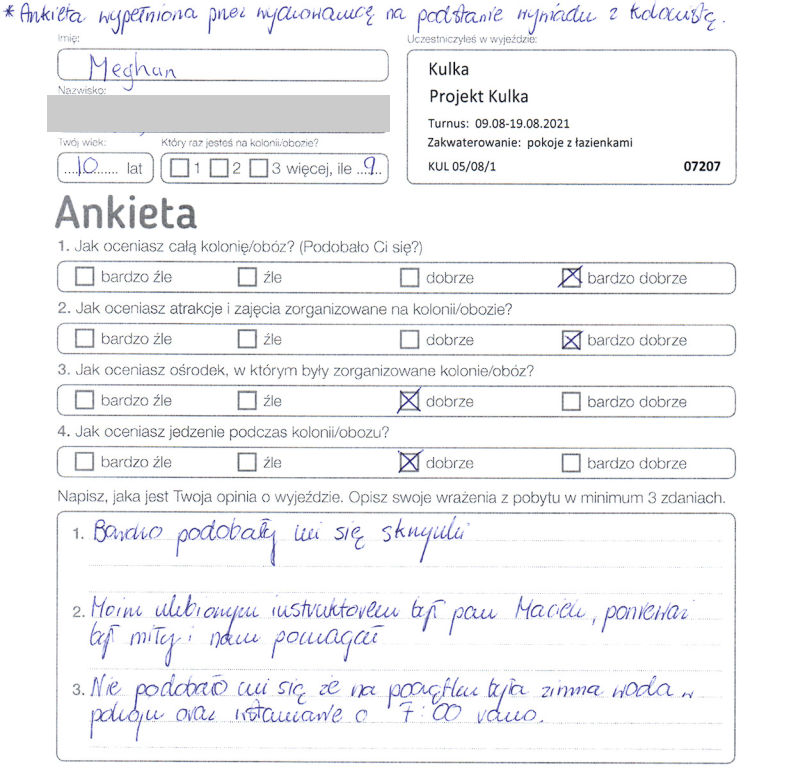 * Ankieta wypełniona przez wychowawcę na podstawie wywiadu z kolonistą.
Imię:
Meghan
Nazwisko:
Twój wiek:
Który raz jesteś na kolonii/obozie?
....10...... lat
1 2 3 więcej, ile ..9..
Uczestniczyłeś w wyjeździe:
Kulka
Projekt Kulka
Turnus: 09.08-19.08.2021
Zakwaterowanie: pokoje z łazienkami
KUL 05/08/1 07207
Ankieta
1. Jak oceniasz całą kolonię/obóz? (Podobało Ci się?)
bardzo źle źle dobrze bardzo dobrze
2. Jak oceniasz atrakcje i zajęcia zorganizowane na kolonii/obozie?
bardzo źle źle dobrze bardzo dobrze
3. Jak oceniasz ośrodek, w którym były zorganizowane kolonie/obóz?
bardzo źle źle dobrze bardzo dobrze
4. Jak oceniasz jedzenie podczas kolonii/obozu?
bardzo źle źle dobrze bardzo dobrze
Napisz, jaka jest Twoja opinia o wyjeździe. Opisz swoje wrażenia z pobytu w minimum 3 zdaniach.
1. Bardzo podobały mi się skrzynki
2. Moim ulubionym instruktorem był pan Maciek, ponieważ
był miły i nam pomagał
3. Nie podobało mi się że na początku była zimna woda w
pokoju oraz wstawanie o 7:00 rano.